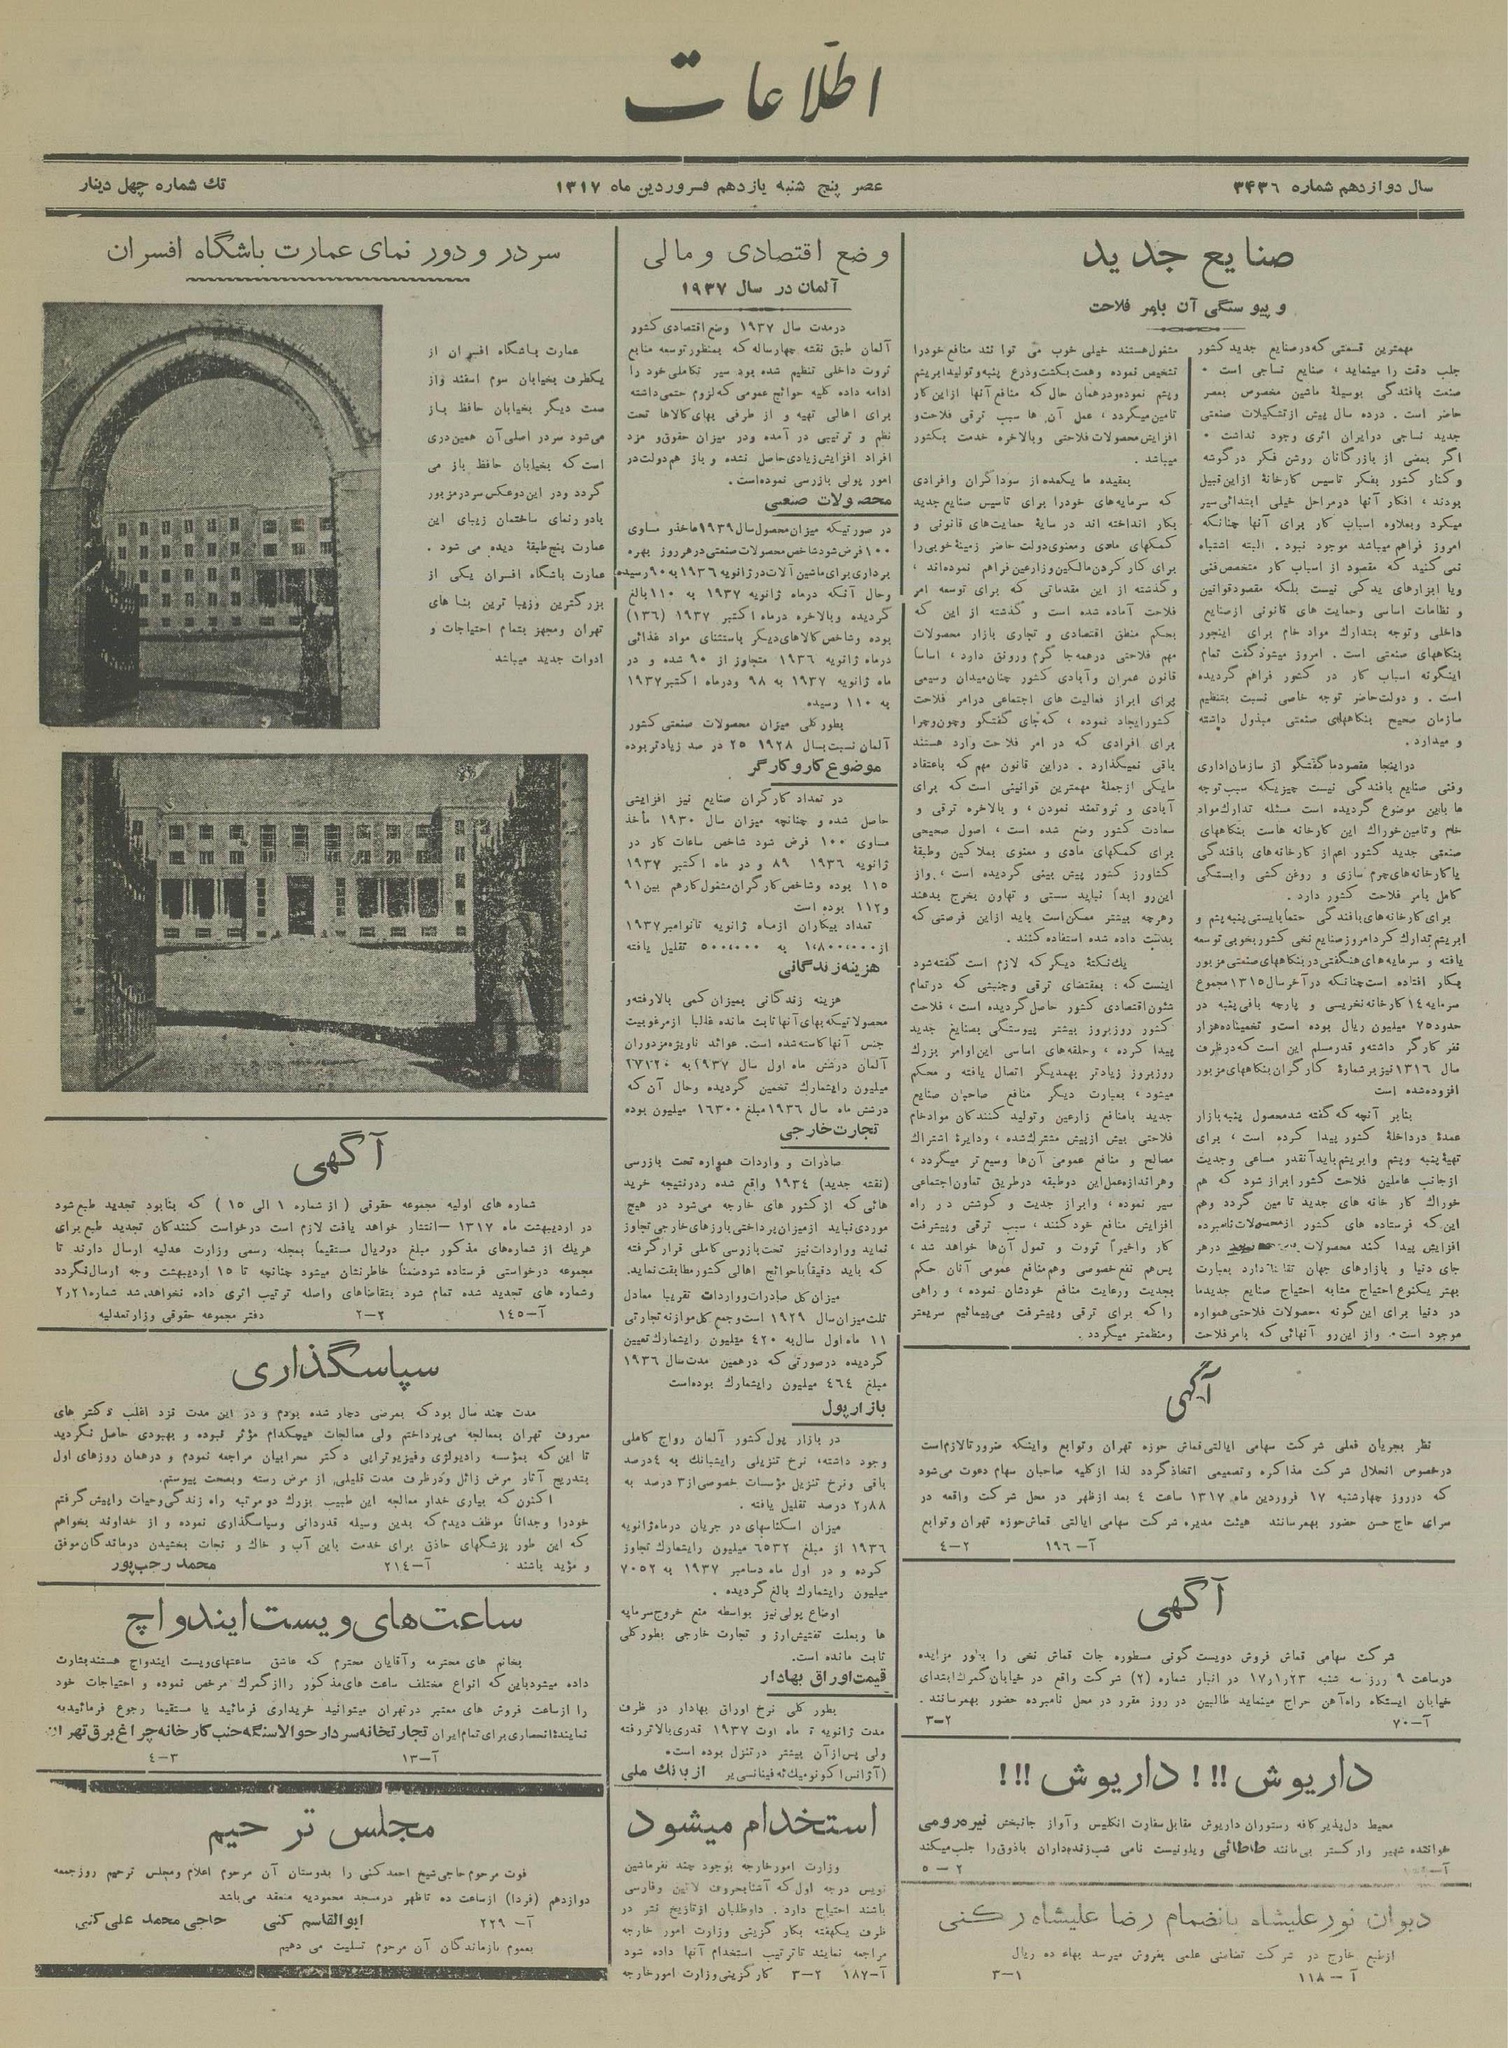 اطلاعات
سال دوازدهم شماره ۳۴۳۶
عصر پنج شنبه یازدهم فروردین ماه ۱۳۱۷
تك شماره چهل دینار
صنایع جدید
و پیوستگی آن بامر فلاحت
مهمترین قسمتی که در صنایع جدید کشور
جلب دقت را مینماید ، صنایع نساجی است .
صنعت بافندگی بوسیلهٔ ماشین مخصوص بعصر
حاضر است . درده سال پیش از تشکیلات صنعتی
جدید نساجی در ایران اثری وجود نداشت .
اگر بعضی از بازرگانان روشن فکر در گوشه
و کنار کشور بفکر تاسیس کارخانهٔ از این قبیل
بودند ، افکار آنها در مراحل خیلی ابتدائی سیر
میکرد و بعلاوه اسباب کار برای آنها چنانکه
امروز فراهم میباشد موجود نبود . البته اشتباه
نمی کنید که مقصود از اسباب کار متخصص فنی
ویا ابزارهای یدکی نیست بلکه مقصود قوانین
و نظامات اساسی وحمایت های قانونی از صنایع
داخلی وتوجه بتدارك مواد خام برای اینجور
بنگاههای صنعتی است . امروز میشود گفت تمام
اینگونه اسباب کار در کشور فراهم گردیده
است . و دولت حاضر توجه خاصی نسبت بتنظیم
سازمان صحیح بنگاههای صنعتی مبذول داشته
و میدارد .
در اینجا مقصود ما گفتگو از سازمان اداری
وفنی صنایع بافندگی نیست چیزیکه سبب توجه
ما باین موضوع گردیده است مسئله تدارك مواد
خام وتامین خوراك این کارخانه هاست بنگاههای
صنعتی جدید کشور اعم از کارخانه های بافندگی
یا کارخانه های چرم سازی و روغن کشی وابستگی
کامل بامر فلاحت کشور دارد .
برای کارخانه های بافندگی حتماً بایستی پنبه پشم و
ابریشم تدارك کرد امروز صنایع نخی کشور بخوبی توسعه
یافته و سرمایه های هنگفتی در بنگاههای صنعتی مزبور
بکار افتاده است چنانکه در آخر سال ۱۳۱۵ مجموع
سرمایه ۱٤ کارخانه نخریسی و پارچه بافی پنبه در
حدود ۷۵ میلیون ریال بوده است و تخمیناً ده هزار
نفر کارگر داشته و قدر مسلم این است که در ظرف
سال ۱۳۱۶ نیز بر شمارهٔ کارگران بنگاههای مزبور
افزوده شده است
بنابر آنچه که گفته شد محصول پنبه بازار
عمدهٔ در داخلهٔ کشور پیدا کرده است ، برای
تهیهٔ پنبه وپشم وابریشم باید آنقدر مساعی وجدیت
از جانب عاملین فلاحت کشور ابراز شود که هم
خوراك کار خانه های جدید تامین گردد وهم
این که فرستاده های کشور از محصولات نامبرده
جای دنیا و بازارهای جهان تقاضا دارد بعبارت
بهتر یکنوع احتیاج مشابه احتیاج صنایع جدید ما
در دنیا برای این گونه محصولات فلاحتی همواره
موجود است . واز این رو آنهائی که بامر فلاحت
مشغول هستند خیلی خوب می توانند منافع خودرا
تشخیص نموده وهمت بکشت وزرع پنبه و تولید ابریشم
وپشم نموده ودر همان حال که منافع آنها از این کار
تامین میگردد ، عمل آن ها سبب ترقی فلاحت و
افزایش محصولات فلاحتی وبالاخره خدمت بکشور
میباشد .
بعقیده ما یکعده از سوداگران وافرادی
که سرمایه های خودرا برای تاسیس صنایع جدید
بکار انداخته اند در سایهٔ حمایت های قانونی و
کمکهای مادی و معنوی دولت حاضر زمینهٔ خوبی را
برای کار کردن مالکین وزارعین فراهم نموده اند ،
وگذشته از این مقدماتی که برای توسعه امر
فلاحت آماده شده است و گذشته از این که
بحکم منطق اقتصادی و تجاری بازار محصولات
مهم فلاحتی در همه جا گرم ورونق دارد ، اساساً
قانون عمران و آبادی کشور چنان میدان وسیعی
برای ابراز فعالیت های اجتماعی در امر فلاحت
کشور ایجاد نموده ، که جای گفتگو و چون و چرا
برای افرادی که در امر فلاحت وارد هستند
باقی نمیگذارد . در این قانون مهم که باعتقاد
ما یکی از جملهٔ مهمترین قوانینی است که برای
آبادی و ثروتمند نمودن ، و بالاخره ترقی و
سعادت کشور وضع شده است ، اصول صحیحی
برای کمکهای مادی و معنوی بملاکین وطبقهٔ
کشاورز کشور پیش بینی گردیده است ، واز
این رو ابداً نباید سستی و تهاون بخرج بدهند
وهرچه بیشتر ممکن است باید از این فرصتی که
بدست داده شده استفاده کنند .
یك نکتهٔ دیگر که لازم است گفته شود
اینست که : بمقتضای ترقی وجنبشی که در تمام
شئون اقتصادی کشور حاصل گردیده است ، فلاحت
کشور روز بروز بیشتر پیوستگی بصنایع جدید
پیدا کرده ، وحلقه های اساسی این اوامر بزرك
روز بروز زیادتر بهمدیگر اتصال یافته و محکم
میشود ، بعبارت دیگر منافع صاحبان صنایع
جدید با منافع زارعین وتولید کنندگان مواد خام
فلاحتی بیش از پیش مشترك شده ، ودایرهٔ اشتراك
مصالح و منافع عمومی آن ها وسیع تر میگردد ،
وهر اندازه عمل این دو طبقه در طریق تعاون اجتماعی
سیر نموده ، وابراز جدیت و کوشش در راه
افزایش منافع خود کنند ، سبب ترقی وپیشرفت
کار واخیراً ثروت و تمول آن ها خواهد شد ،
پس هم نفع خصوصی وهم منافع عمومی آنان حکم
بجدیت ورعایت منافع خودشان نموده ، و راهی
را که برای ترقی وپیشرفت می پیمائیم سریعتر
ومنظمتر میگردد .
آگهی
نظر بجریان فعلی شرکت سهامی ایالتی قماش حوزه تهران وتوابع واینکه ضرورتاً لازم است
در خصوص انحلال شرکت مذاکره وتصمیمی اتخاذ گردد لذا از کلیه صاحبان سهام دعوت می شود
که در روز چهارشنبه ۱۷ فروردین ماه ۱۳۱۷ ساعت ٤ بعد از ظهر در محل شرکت واقعه در
سرای حاج حسن حضور بهمرسانند هیئت مدیره شرکت سهامی ایالتی قماش حوزه تهران وتوابع
آ- ۱۹۶ ۲-٤
آگهی
شرکت سهامی قماش فروش دویست گونی مسطوره جات قماش نخی را بطور مزایده
در ساعت ۹ روز سه شنبه ۱۷٫۱٫۲۳ در انبار شماره (۲) شرکت واقع در خیابان گمرك ابتدای
خیابان ایستگاه راه آهن حراج مینماید طالبین در روز مقرر در محل نامبرده حضور بهمرسانند .
آ-۷۰ ۲-۳
داریوش !!! داریوش !!!
محیط دل پذیر کافه رستوران داریوش مقابل سفارت انگلیس و آواز جانبخش نیره رومی
خواننده شهیر وارکستر بی مانند طاطائی ویلونیست نامی شب زنده داران باذوق را جلب میکند
۲-۵
دیوان نورعلیشاه بانضمام رضا علیشاه رکنی
از طبع خارج در شرکت تضامنی علمی بفروش میرسد بهاء ده ریال
آ- ۱۱۸ ۱-۳
وضع اقتصادی و مالی
آلمان در سال ۱۹۳۷
در مدت سال ۱۹۳۷ وضع اقتصادی کشور
آلمان طبق نقشه چهار ساله که بمنظور توسعه منابع
ثروت داخلی تنظیم شده بود سیر تکاملی خود را
ادامه داده کلیه حوائج عمومی که لزوم حتمی داشته
برای اهالی تهیه و از طرفی بهای کالاها تحت
نظم و ترتیبی در آمده ودر میزان حقوق و مزد
افراد افزایش زیادی حاصل نشده و باز هم دولت در
امور پولی بازرسی نموده است .
محصولات صنعتی
در صورتیکه میزان محصول سال ۱۹۳۹ مأخذ و مساوی
۱۰۰ فرض شود شاخص محصولات صنعتی در هر روز بهره
برداری برای ماشین آلات در ژانویه ۱۹۳۶ به ۹۰ رسیده
وحال آنکه در ماه ژانویه ۱۹۳۷ به ۱۱۰ بالغ
گردیده وبالاخره در ماه اکتبر ۱۹۳۷ (۱۳۶)
بوده وشاخص کالاهای دیگر باستثنای مواد غذائی
در ماه ژانویه ۱۹۳۶ متجاوز از ۹۰ شده و در
ماه ژانویه ۱۹۳۷ به ۹۸ ودر ماه اکتبر ۱۹۳۷
به ۱۱۰ رسیده
بطور کلی میزان محصولات صنعتی کشور
آلمان نسبت بسال ۱۹۲۸ ۲۵ در صد زیادتر بوده
موضوع کار و کارگر
در تعداد کارگران صنایع نیز افزایشی
حاصل شده و چنانچه میزان سال ۱۹۳۰ مأخذ
مساوی ۱۰۰ فرض شود شاخص ساعات کار در
ژانویه ۱۹۳۶ ۸۹ و در ماه اکتبر ۱۹۳۷
۱۱۵ بوده وشاخص کارگران مشغول کار هم بین ۹۱
و ۱۱۲ بوده است
تعداد بیکاران از ماه ژانویه تا نوامبر ۱۹۳۷
از ۱،۸۰۰،۰۰۰ به ۵۰۰،۰۰۰ تقلیل یافته
هزینه زندگانی
هزینه زندگانی بمیزان کمی بالا رفته و
محصولاتیکه بهای آنها ثابت مانده غالباً از مرغوبیت
جنس آنها کاسته شده است . عوائد ناویژه مزدوران
آلمان در شش ماه اول سال ۱۹۳۷ به ۲۷۲۲۰
میلیون رایشمارك تخمین گردیده وحال آن که
در شش ماه سال ۱۹۳۶ مبلغ ۱۶۳۰۰ میلیون بوده
تجارت خارجی
صادرات و واردات همواره تحت بازرسی
(نقشه جدید) ۱۹۳٤ واقع شده و در نتیجه خرید
هائی که از کشور های خارجه می شود در هیچ
موردی نباید از میزان پرداختی بارزهای خارجی تجاوز
نماید وواردات نیز تحت بازرسی کاملی قرار گرفته
که باید دقیقاً با حوائج اهالی کشور مطابقت نماید .
میزان کل صادرات وواردات تقریباً معادل
ثلث میزان سال ۱۹۲۹ است و جمع کل موازنه تجارتی
۱۱ ماه اول سال به ٤۲۰ میلیون رایشمارك تعیین
گردیده در صورتی که در همین مدت سال ۱۹۳۶
مبلغ ٤۶٤ میلیون رایشمارك بوده است
بازار پول
در بازار پول کشور آلمان رواج کاملی
وجود داشته ، نرخ تنزیلی رایشبانك به ٤ درصد
باقی ونرخ تنزیل مؤسسات خصوصی از ۳ درصد به
۲٫۸۸ درصد تقلیل یافته .
میزان اسکناسهای در جریان در ماه ژانویه
۱۹۳۶ از مبلغ ۶۵۳۲ میلیون رایشمارك تجاوز
کرده و در اول ماه دسامبر ۱۹۳۷ به ۷۰۵۲
میلیون رایشمارك بالغ گردیده .
اوضاع پولی نیز بواسطه منع خروج سرمایه
ها وبعلت تفتیش ارز و تجارت خارجی بطور کلی
ثابت مانده است .
قیمت اوراق بهادار
بطور کلی نرخ اوراق بهادار در ظرف
مدت ژانویه تا ماه اوت ۱۹۳۷ قدری بالاتر رفته
ولی پس از آن بیشتر در تنزل بوده است .
(آژانس اکونومیك ئه فینانسیر) از بانك ملی
استخدام میشود
وزارت امور خارجه بوجود چند نفر ماشین
نویس درجه اول که آشنا بحروف لاتین وفارسی
باشند احتیاج دارد . داوطلبان از تاریخ نشر در
ظرف یکهفته بکار گزینی وزارت امور خارجه
مراجعه نمایند تا ترتیب استخدام آنها داده شود
آ-۱۸۷ ۲-۳ کارگزینی وزارت امور خارجه
سر در و دور نمای عمارت باشگاه افسران
عمارت باشگاه افسران از
یکطرف بخیابان سوم اسفند و از
سمت دیگر بخیابان حافظ باز
می شود سردر اصلی آن همین دری
است که بخیابان حافظ باز می
گردد ودر این دو عکس سر در مزبور
با دور نمای ساختمان زیبای این
عمارت پنج طبقهٔ دیده می شود .
عمارت باشگاه افسران یکی از
بزرگترین وزیبا ترین بنا های
تهران ومجهز بتمام احتیاجات و
ادوات جدید میباشد
آگهی
شماره های اولیه مجموعه حقوقی (از شماره ۱ الی ۱۵) که بنابود تجدید طبع شود
در اردیبهشت ماه ۱۳۱۷ - انتشار خواهد یافت لازم است درخواست کنندگان تجدید طبع برای
هریك از شماره های مذکور مبلغ دو ریال مستقیماً بمجله رسمی وزارت عدلیه ارسال دارند تا
مجموعه درخواستی فرستاده شود ضمناً خاطر نشان میشود چنانچه تا ۱۵ اردیبهشت وجه ارسال نگردد
وشماره های تجدید شده تمام شود بتقاضاهای واصله ترتیب اثری داده نخواهد شد شماره ۲٫۲۱
آ-۱٤۵ ۲-۲ دفتر مجموعه حقوقی وزارت عدلیه
سپاسگذاری
مدت چند سال بود که بمرضی دچار شده بودم و در این مدت نزد اغلب دکتر های
معروف تهران بمعالجه می پرداختم ولی معالجات هیچکدام مؤثر نبوده و بهبودی حاصل نگردید
تا این که بمؤسسه رادیولوژی وفیزیوتراپی دکتر محرابیان مراجعه نمودم و در همان روزهای اول
بتدریج آثار مرض زائل و در ظرف مدت قلیلی از مرض رسته وبصحت پیوستم .
اکنون که بیاری خدا در معالجه این طبیب بزرك دو مرتبه راه زندگی وحیات را پیش گرفتم
خودرا وجداناً موظف دیدم که بدین وسیله قدردانی وسپاسگذاری نموده و از خداوند بخواهم
که این طور پزشگهای حاذق برای خدمت باین آب و خاك و نجات بخشیدن درماندگان موفق
و مؤید باشند . آ-۲۱٤ محمد رجب پور
ساعت های ویست ایند واچ
بخانم های محترمه وآقایان محترم که عاشق ساعتهای ویست ایند واچ هستند بشارت
داده میشود باین که انواع مختلف ساعت های مذکور را از گمرك مرخص نموده و احتیاجات خود
را از ساعت فروش های معتبر در تهران میتوانید خریداری فرمائید یا مستقیماً رجوع فرمائید به
نماینده انحصاری برای تمام ایران تجارتخانه سردار حوالا سنگه جنب کارخانه چراغ برق تهران
آ-۱۳ ۳-٤
مجلس ترحیم
فوت مرحوم حاجی شیخ احمد کنی را بدوستان آن مرحوم اعلام ومجلس ترحیم روز جمعه
دوازدهم (فردا) از ساعت ده تا ظهر در مسجد محمودیه منعقد می باشد
آ- ۲۲۹ ابوالقاسم کنی حاجی محمد علی کنی
بعموم بازماندگان آن مرحوم تسلیت می دهیم